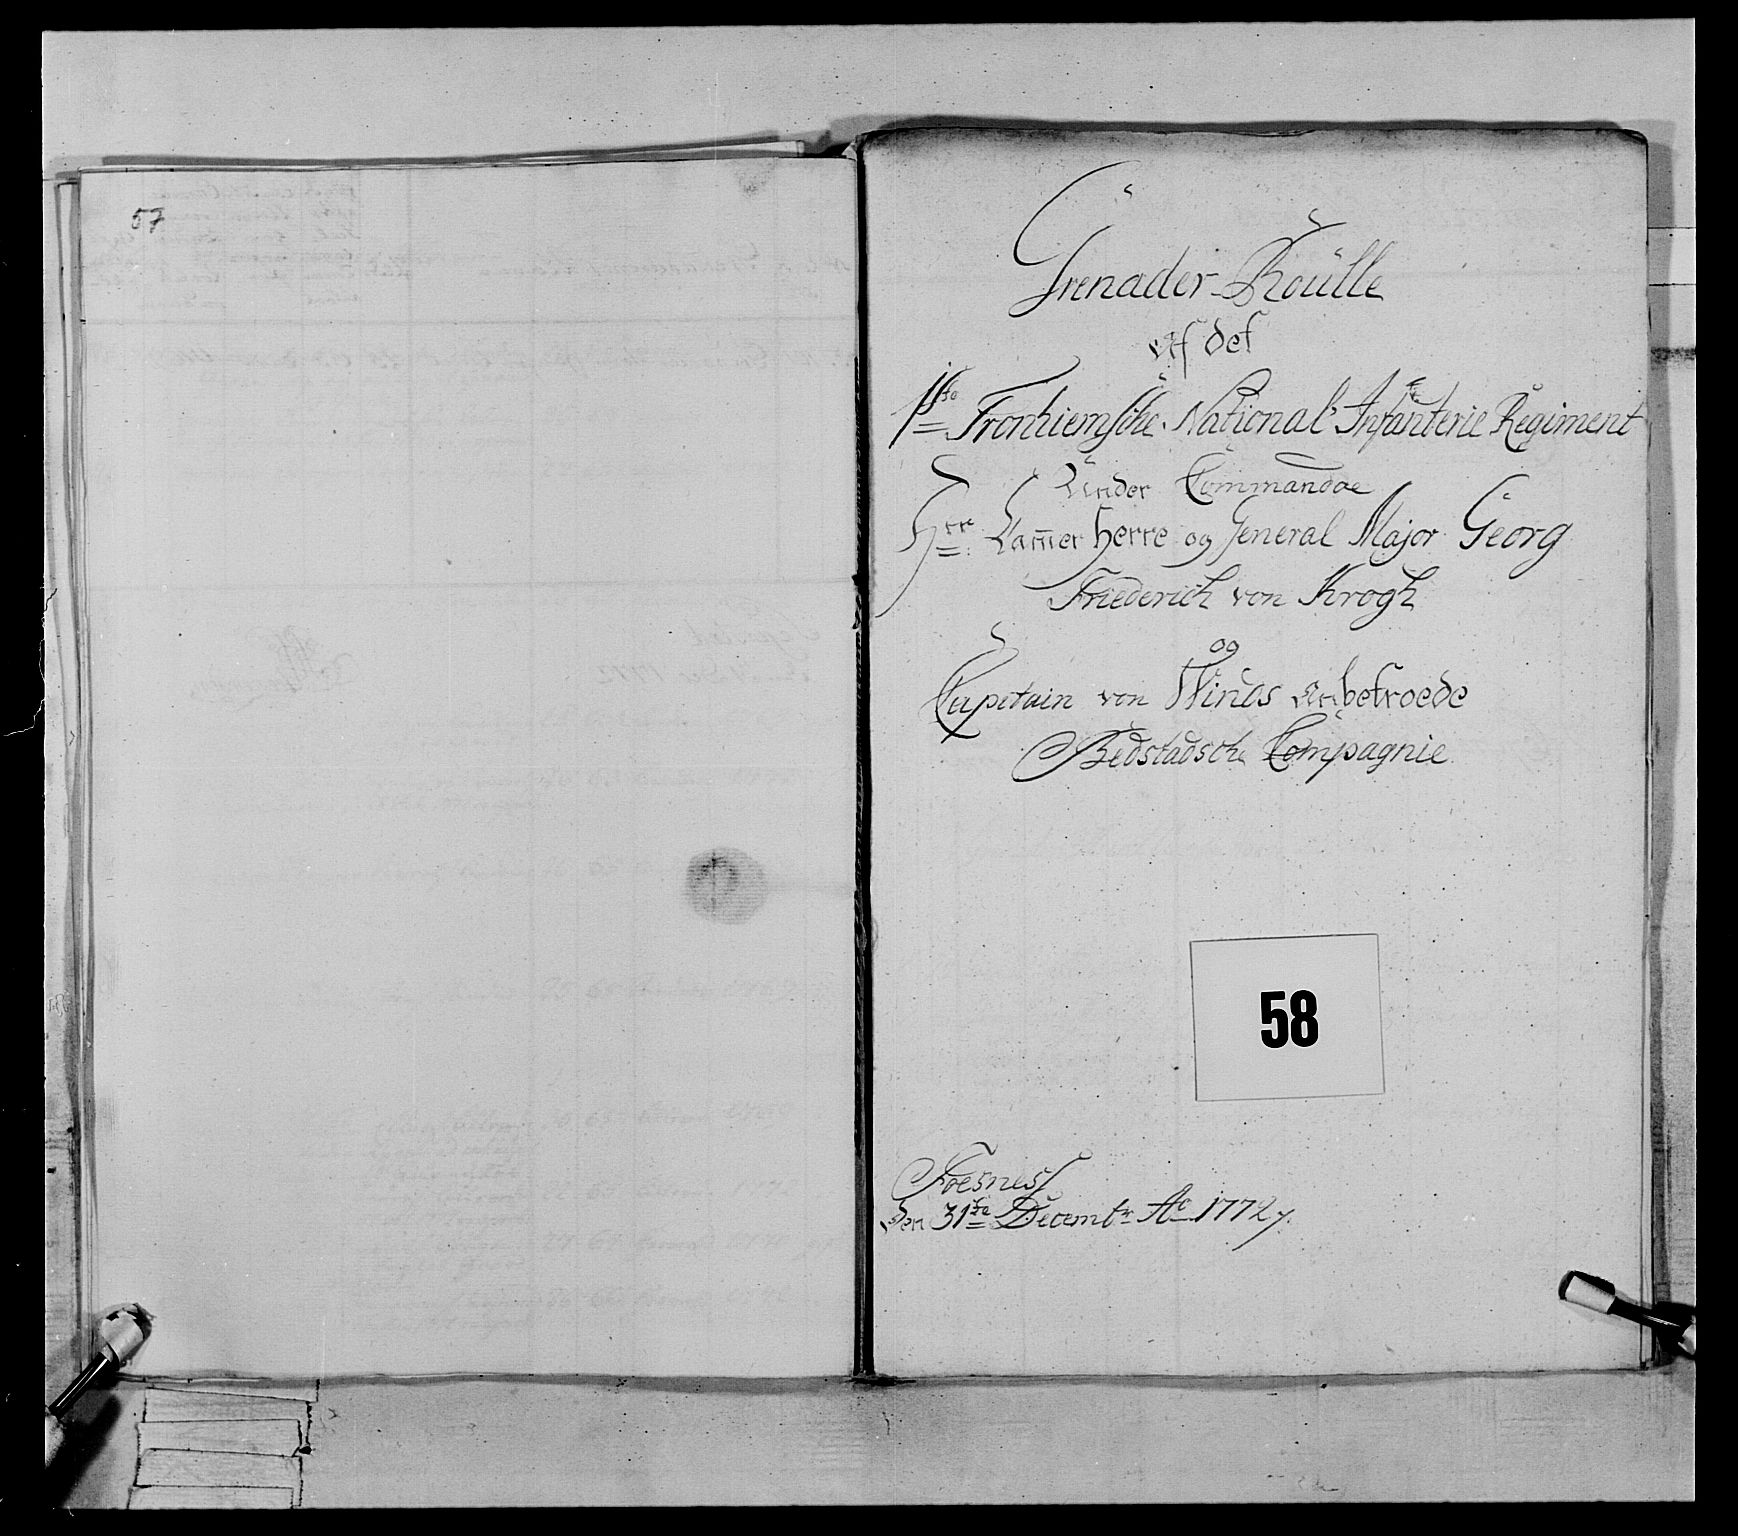 57
Grenader-Roülle
af det
1ste Tronhiemsche National Infanterie Regiment
Ünder Commandoe
Hrr: Cam̄er Herre og General Major Georg
Friederich von Krogh
og
Capitain von Winds anbetroede
Bedstadsche Compagnie
58
Foesness
Den 31te Decembr Ao 1772